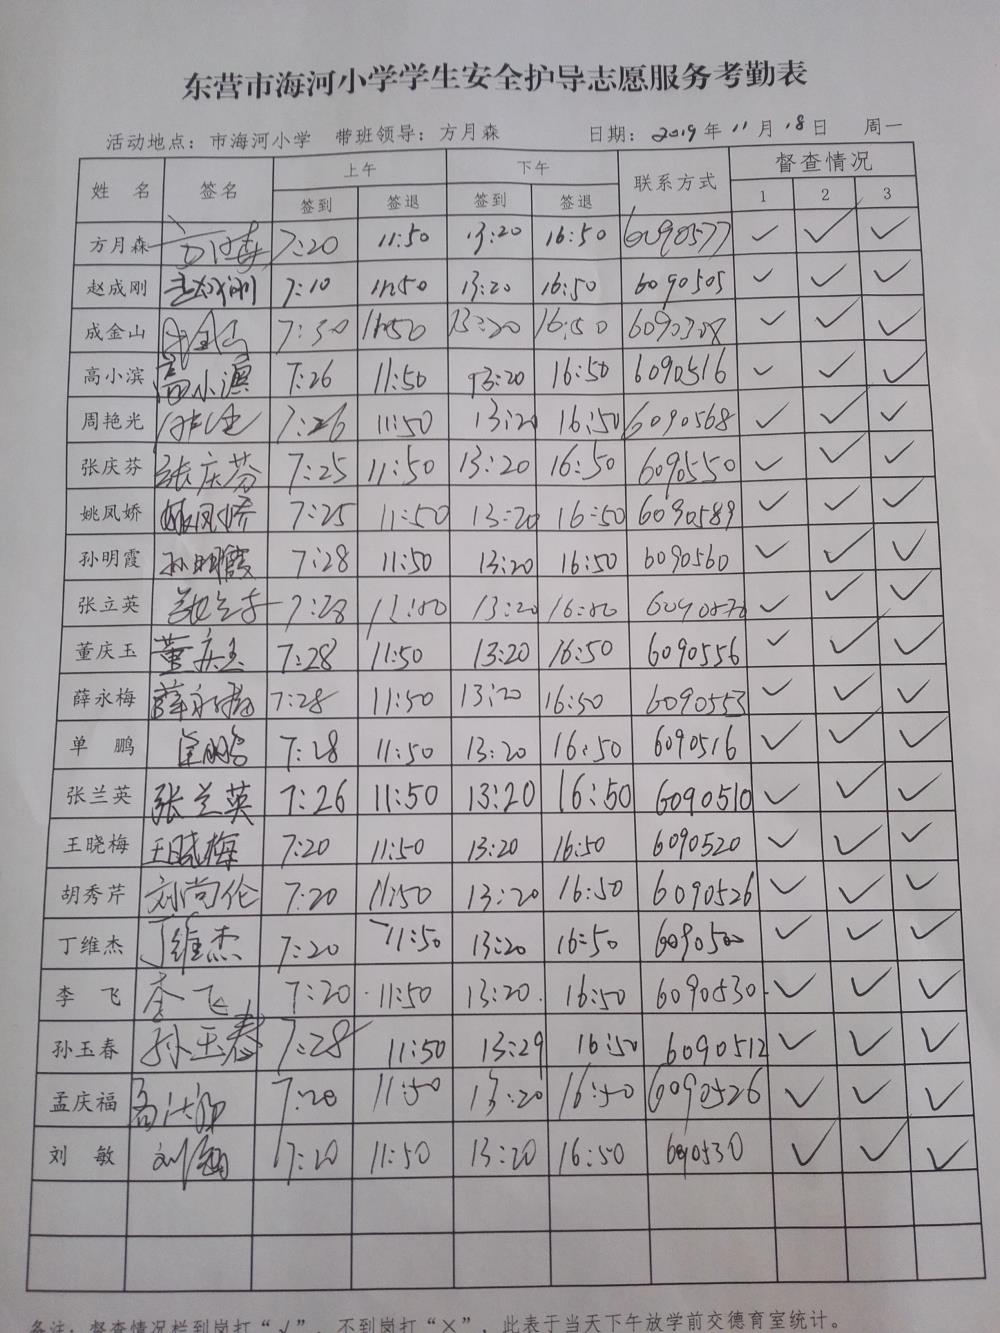 东营市海河小学学生安全护导志愿服务考勤表
活动地点：市海河小学 带班领导：方月森 日期：2019年11月18日 周一
姓 名 签名 上午 下午 联系方式 督查情况
签到 签退 签到 签退 1 2 3
方月森 7:20 11:50 13:20 16:50 6090577 ✓ ✓ ✓
赵成刚 赵成刚 7:10 11:50 13:20 16:50 6090505 ✓ ✓ ✓
成金山 成金山 7:30 11:50 13:20 16:50 6090308 ✓ ✓ ✓
高小滨 高小滨 7:26 11:50 13:20 16:50 6090516 ✓ ✓ ✓
周艳光 7:26 11:50 13:20 16:50 6090568 ✓ ✓ ✓
张庆芬 张庆芬 7:25 11:50 13:20 16:50 6090550 ✓ ✓ ✓
姚凤娇 姚凤娇 7:25 11:50 13:20 16:50 6090589 ✓ ✓ ✓
孙明霞 孙明霞 7:28 11:50 13:20 16:50 6090560 ✓ ✓ ✓
张立英 7:28 13:20 ✓ ✓ ✓
董庆玉 董庆玉 7:28 11:50 13:20 16:50 6090556 ✓ ✓ ✓
薛永梅 薛永梅 7:28 11:50 13:20 16:50 6090553 ✓ ✓ ✓
单 鹏 单鹏 7:28 11:50 13:20 16:50 6090516 ✓ ✓ ✓
张兰英 张兰英 7:26 11:50 13:20 16:50 6090510 ✓ ✓ ✓
王晓梅 王晓梅 7:20 11:50 13:20 16:50 6090520 ✓ ✓ ✓
胡秀芹 刘尚伦 7:20 11:50 13:20 16:50 6090526 ✓ ✓ ✓
丁维杰 丁维杰 7:20 11:50 13:20 16:50 6090500 ✓ ✓ ✓
李 飞 李飞 7:20 11:50 13:20 16:50 6090530 ✓ ✓ ✓
孙玉春 孙玉春 7:28 11:50 13:29 16:50 6090512 ✓ ✓ ✓
孟庆福 7:20 11:50 13:20 16:50 6090526 ✓ ✓ ✓
刘 敏 刘敏 7:20 11:50 13:20 16:50 690530 ✓ ✓ ✓
备注：督查情况栏到岗打“√”，不到岗打“×”，此表于当天下午放学前交德育室统计。